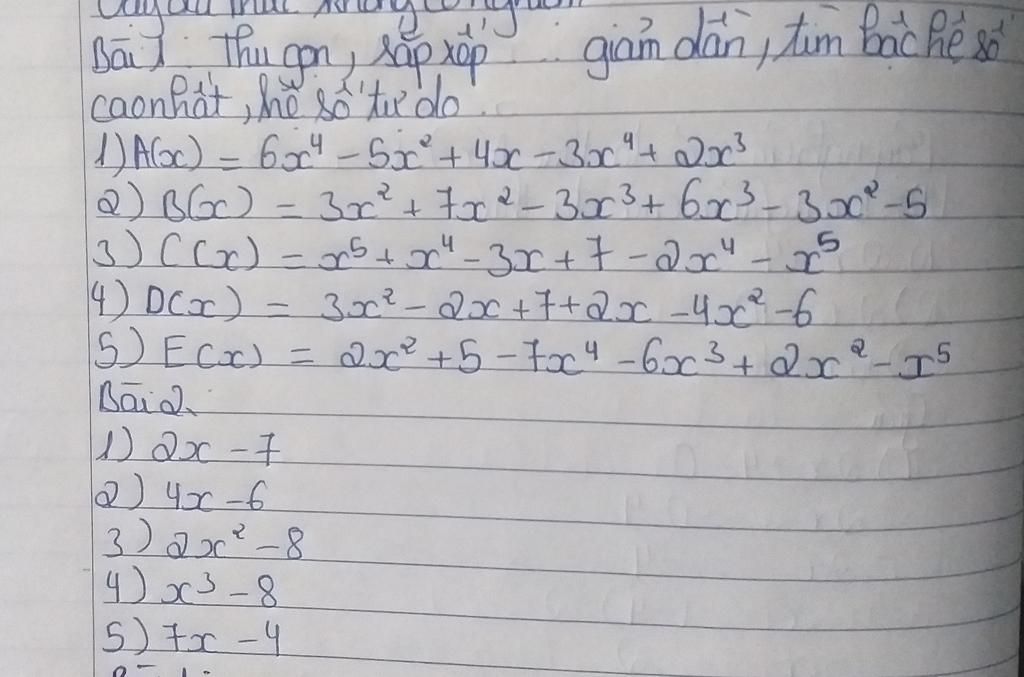 Bài 1 Thu gọn, sắp xếp .. giảm dần, tìm bậc hệ số
cao nhất, hệ số tự do.
1) A(x) = 6x⁴ - 5x² + 4x - 3x⁴ + 2x³
2) B(x) = 3x² + 7x² - 3x³ + 6x³ - 3x² - 5
3) C(x) = x⁵ + x⁴ - 3x + 7 - 2x⁴ - x⁵
4) D(x) = 3x² - 2x + 7 + 2x - 4x² - 6
5) E(x) = 2x² + 5 - 7x⁴ - 6x³ + 2x² - x⁵
Bài 2.
1) 2x - 7
2) 4x - 6
3) 2x² - 8
4) x³ - 8
5) 7x - 4